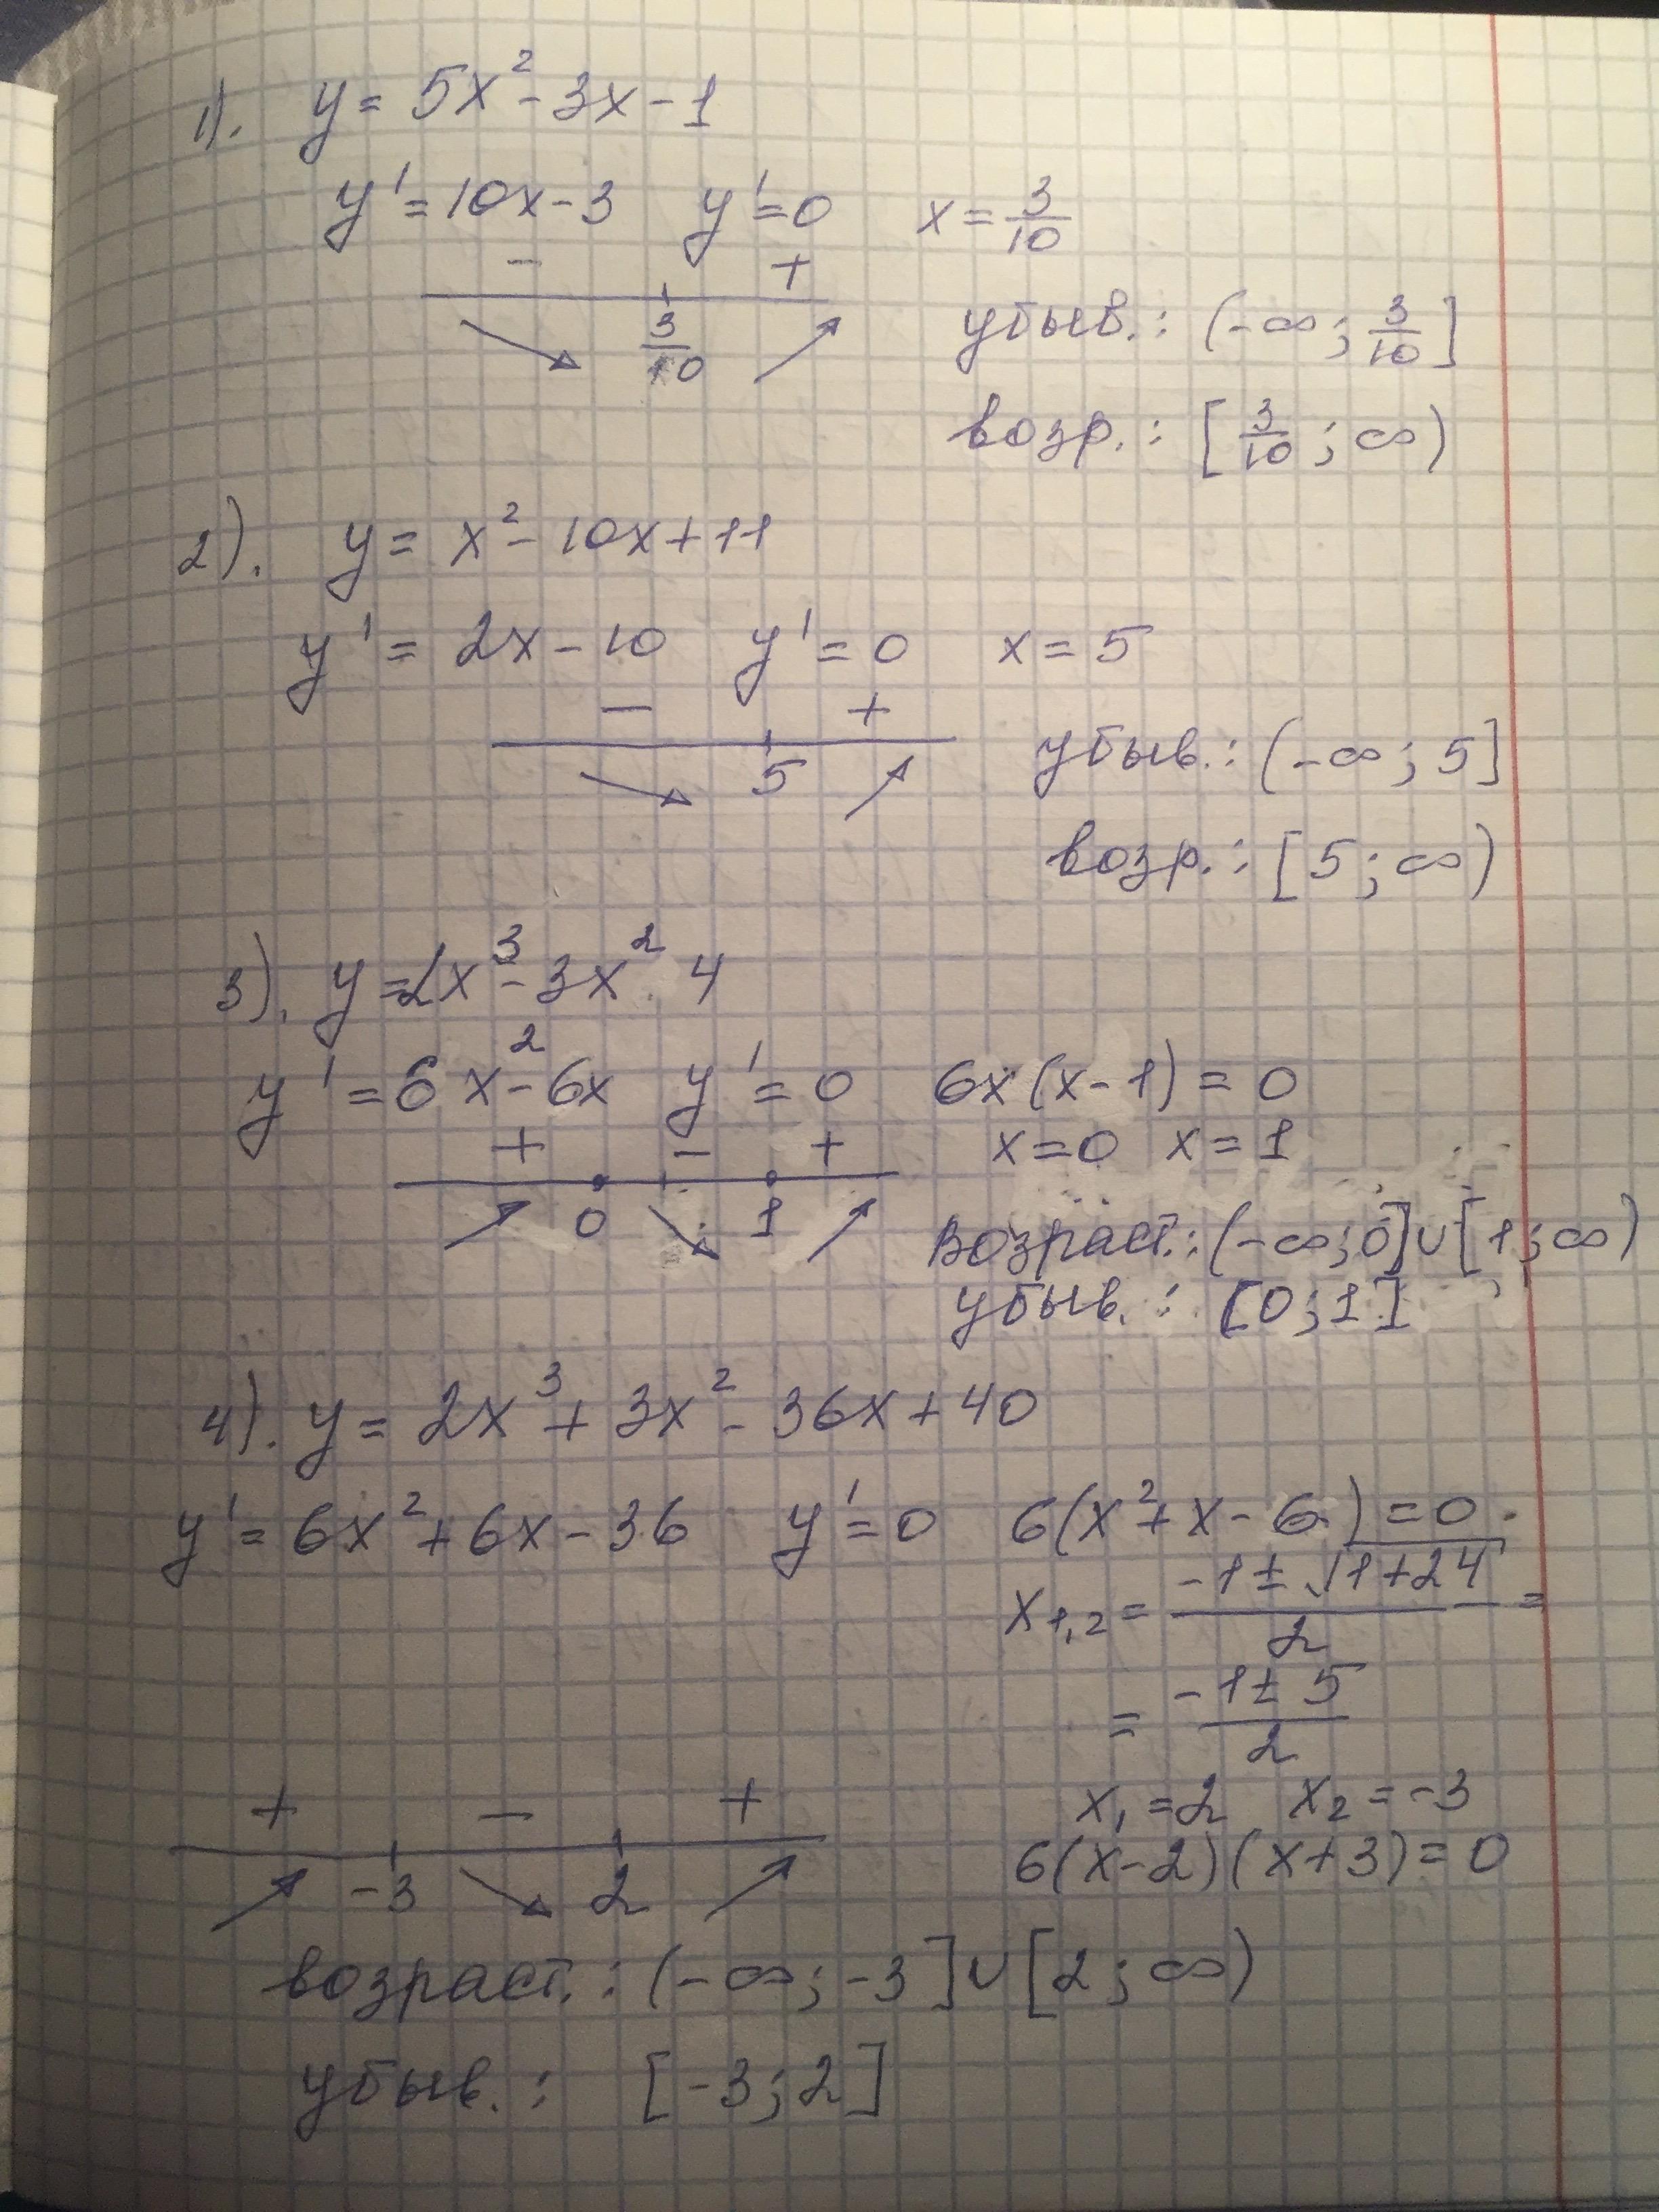 1). y = 5x² - 3x - 1
y' = 10x - 3 y' = 0 x = 3/10
- +
3/10
убыв.: (-∞; 3/10]
возр.: [3/10; ∞)
2). y = x² - 10x + 11
y' = 2x - 10 y' = 0 x = 5
- +
5
убыв.: (-∞; 5]
возр.: [5; ∞)
3). y = 2x³ - 3x² 4
y' = 6x² - 6x y' = 0 6x(x - 1) = 0
+ - + x = 0 x = 1
0 1
возраст.: (-∞; 0] ∪ [1; ∞)
убыв.: [0; 1]
4). y = 2x³ + 3x² - 36x + 40
y' = 6x² + 6x - 36 y' = 0 6(x² + x - 6) = 0
x₁,₂ = (-1 ± √(1 + 24))/2 =
= (-1 ± 5)/2
x₁ = 2 x₂ = -3
6(x - 2)(x + 3) = 0
+ - +
-3 2
возраст.: (-∞; -3] ∪ [2; ∞)
убыв.: [-3; 2]